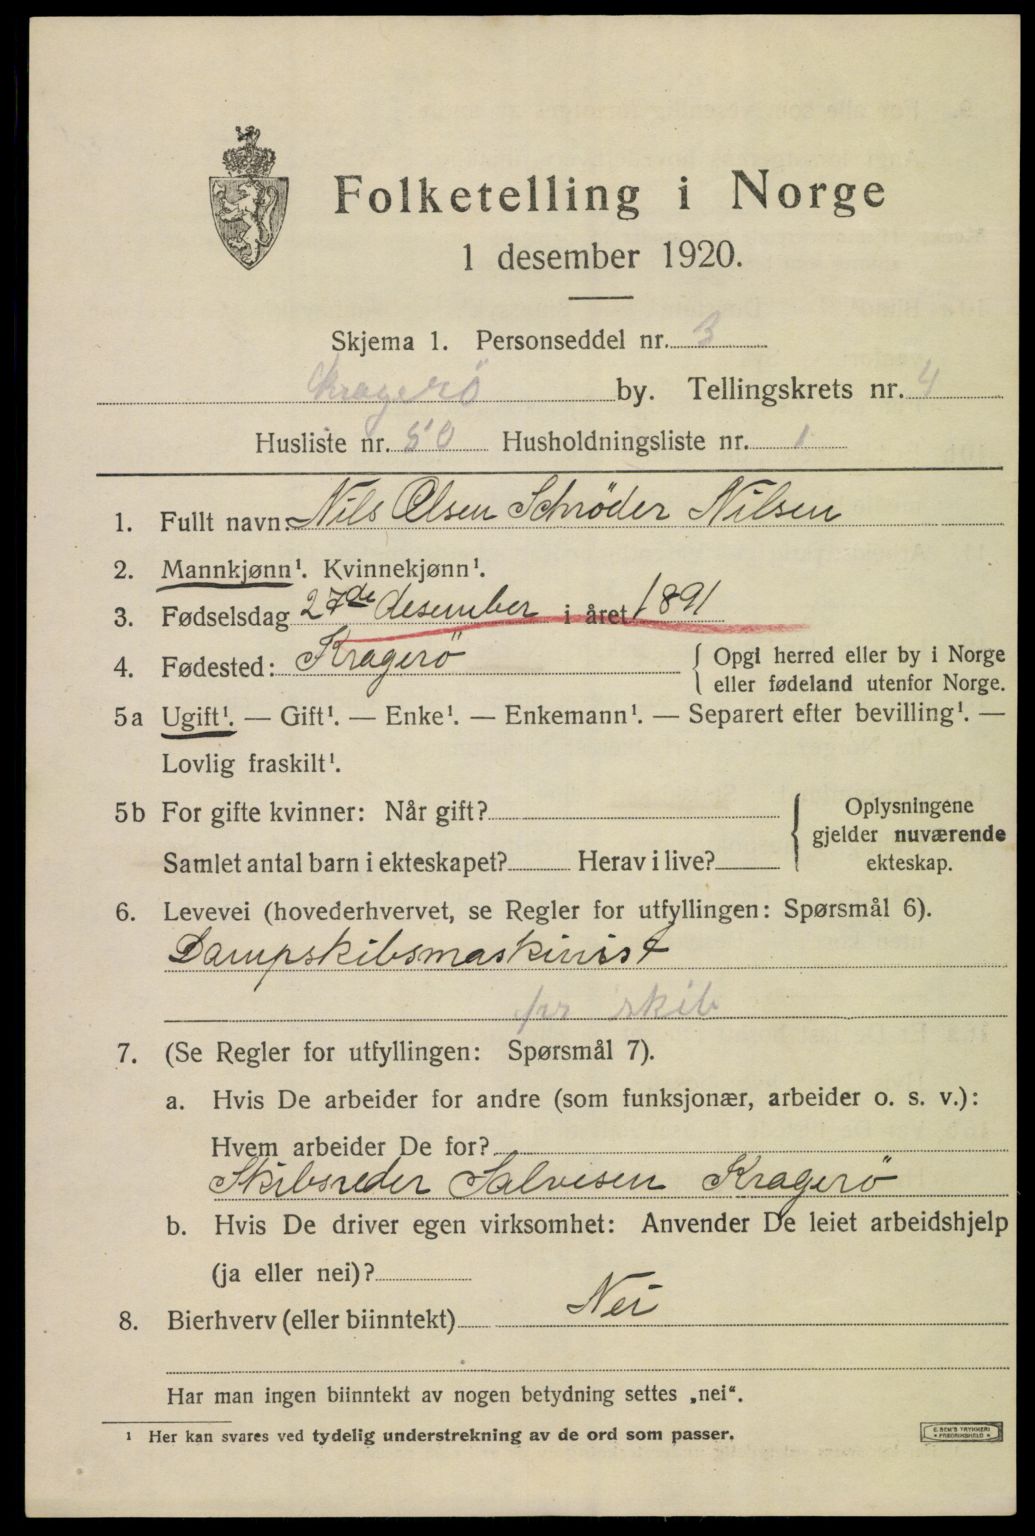 Folketelling i Norge
1 desember 1920.
Skjema 1. Personseddel nr. 3
Kragerö by. Tellingskrets nr. 4
Husliste nr. 50 Husholdningsliste nr. 1
1. Fullt navn: Nils Olsen Schrøder Nilsen
2. Mannkjønn¹. Kvinnekjønn¹.
3. Fødselsdag 27de desember i året 1891
4. Fødested: Kragerö { Opgi herred eller by i Norge
eller fødeland utenfor Norge.
5a Ugift¹. — Gift¹. — Enke¹. — Enkemann¹. — Separert efter bevilling¹. —
Lovlig fraskilt¹.
5b For gifte kvinner: Når gift? } Oplysningene
gjelder nuværende
Samlet antal barn i ekteskapet? Herav i live? ekteskap.
6. Levevei (hovederhvervet, se Regler for utfyllingen: Spørsmål 6).
Dampskibsmaskinist
pr skib
7. (Se Regler for utfyllingen: Spørsmål 7).
a. Hvis De arbeider for andre (som funksjonær, arbeider o. s. v.):
Hvem arbeider De for?
Skibsreder Salvesen Kragerö
b. Hvis De driver egen virksomhet: Anvender De leiet arbeidshjelp
(ja eller nei)?
8. Bierhverv (eller biinntekt) Nei
Har man ingen biinntekt av nogen betydning settes „nei“.
¹ Her kan svares ved tydelig understrekning av de ord som passer.